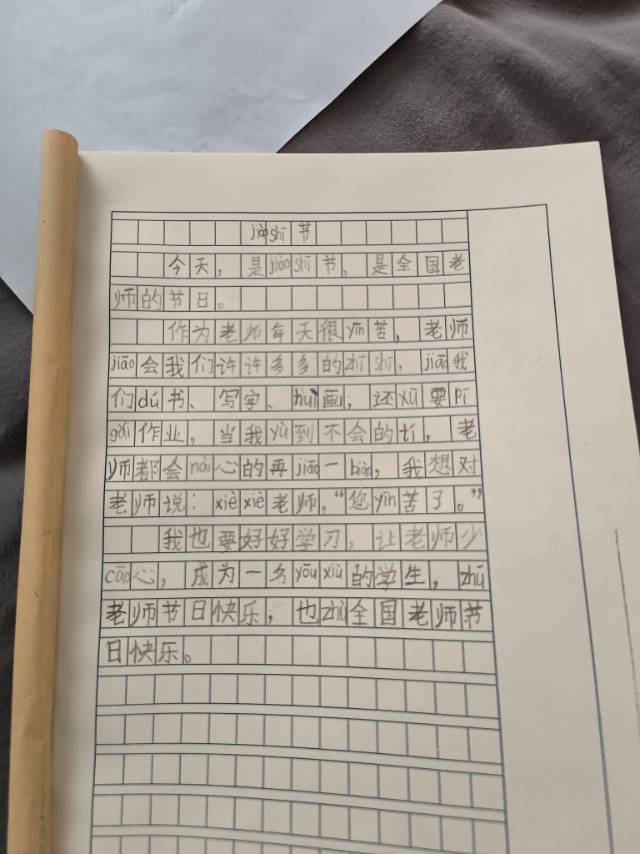 jiào shī节
今天，是jiào shī节、是全国老
师的节日。
作为老师每天很yīn苦，老师
jiāo会我们许许多多的zhī shí，jiāo我
们dú书、写字、huì画；还xū要pī
gǎi作业，当我yù到不会的tí，老
师都会nài心的再jiāo一biàn，我想对
老师说：xiè xiè老师，“您yīn苦了。”
我也要好好学习，让老师少
cāo心，成为一名yōu xiù的学生，zhù
老师节日快乐，也zhù全国老师节
日快乐。